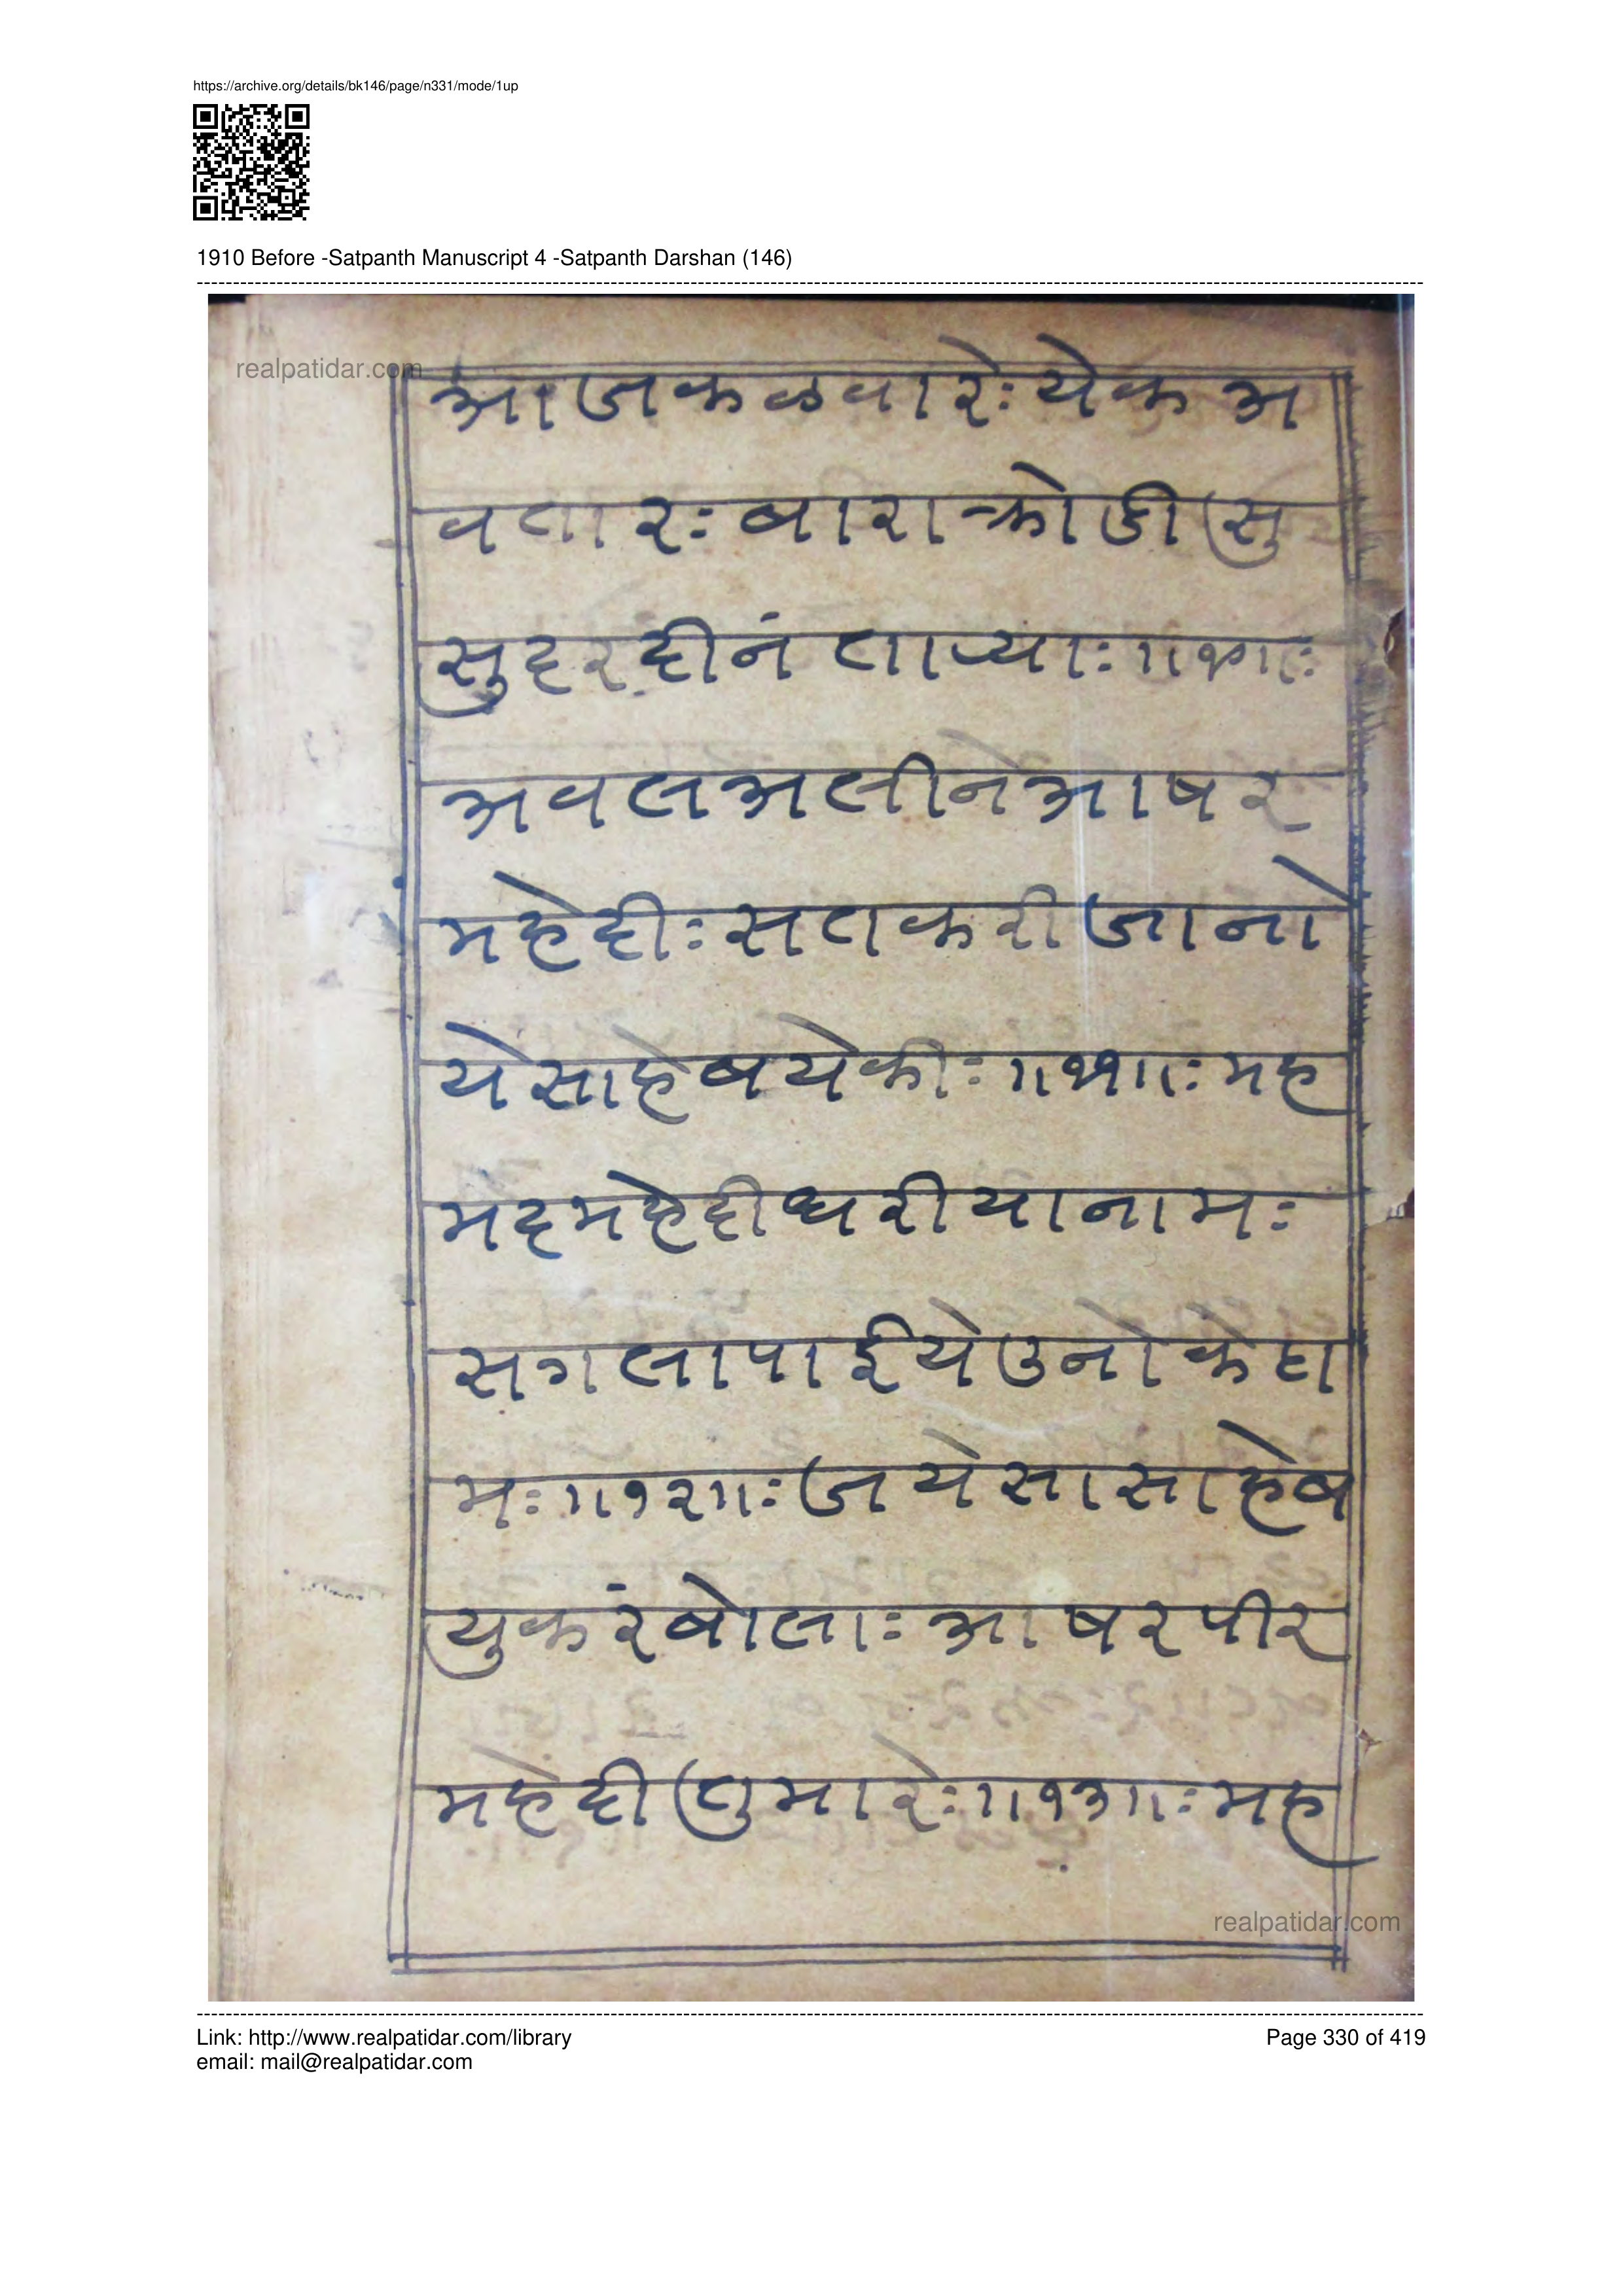 https://archive.org/details/bk146/page/n331/mode/1up
1910 Before -Satpanth Manuscript 4 -Satpanth Darshan (146)
realpatidar.com
आजकळवारेः येक अ
वतारः बारा क्रोडी सु
सुदर दीनं ताप्याः ॥१०॥ः
अवलअलीनेआषर
महेदीः सतकरीजानो
येसाहेबयेकीः ॥११॥ः मह
मदमहेदीधरीयानामः
सगलापाईयेउनोकेठा
मः ॥१२॥ः जयेसासाहेब
युकरंबोलाः आषरपीर
महेदीतुमारेः ॥१३॥ः मह
realpatidar.com
Link: http://www.realpatidar.com/library
Page 330 of 419
email: mail@realpatidar.com